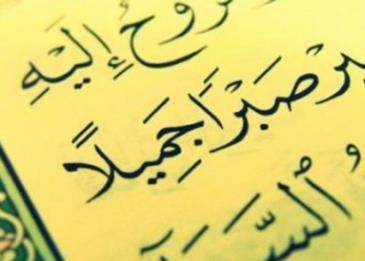 رُوحُ إِلَيْهِ
بِرْ صَبْرًا جَمِيلًا